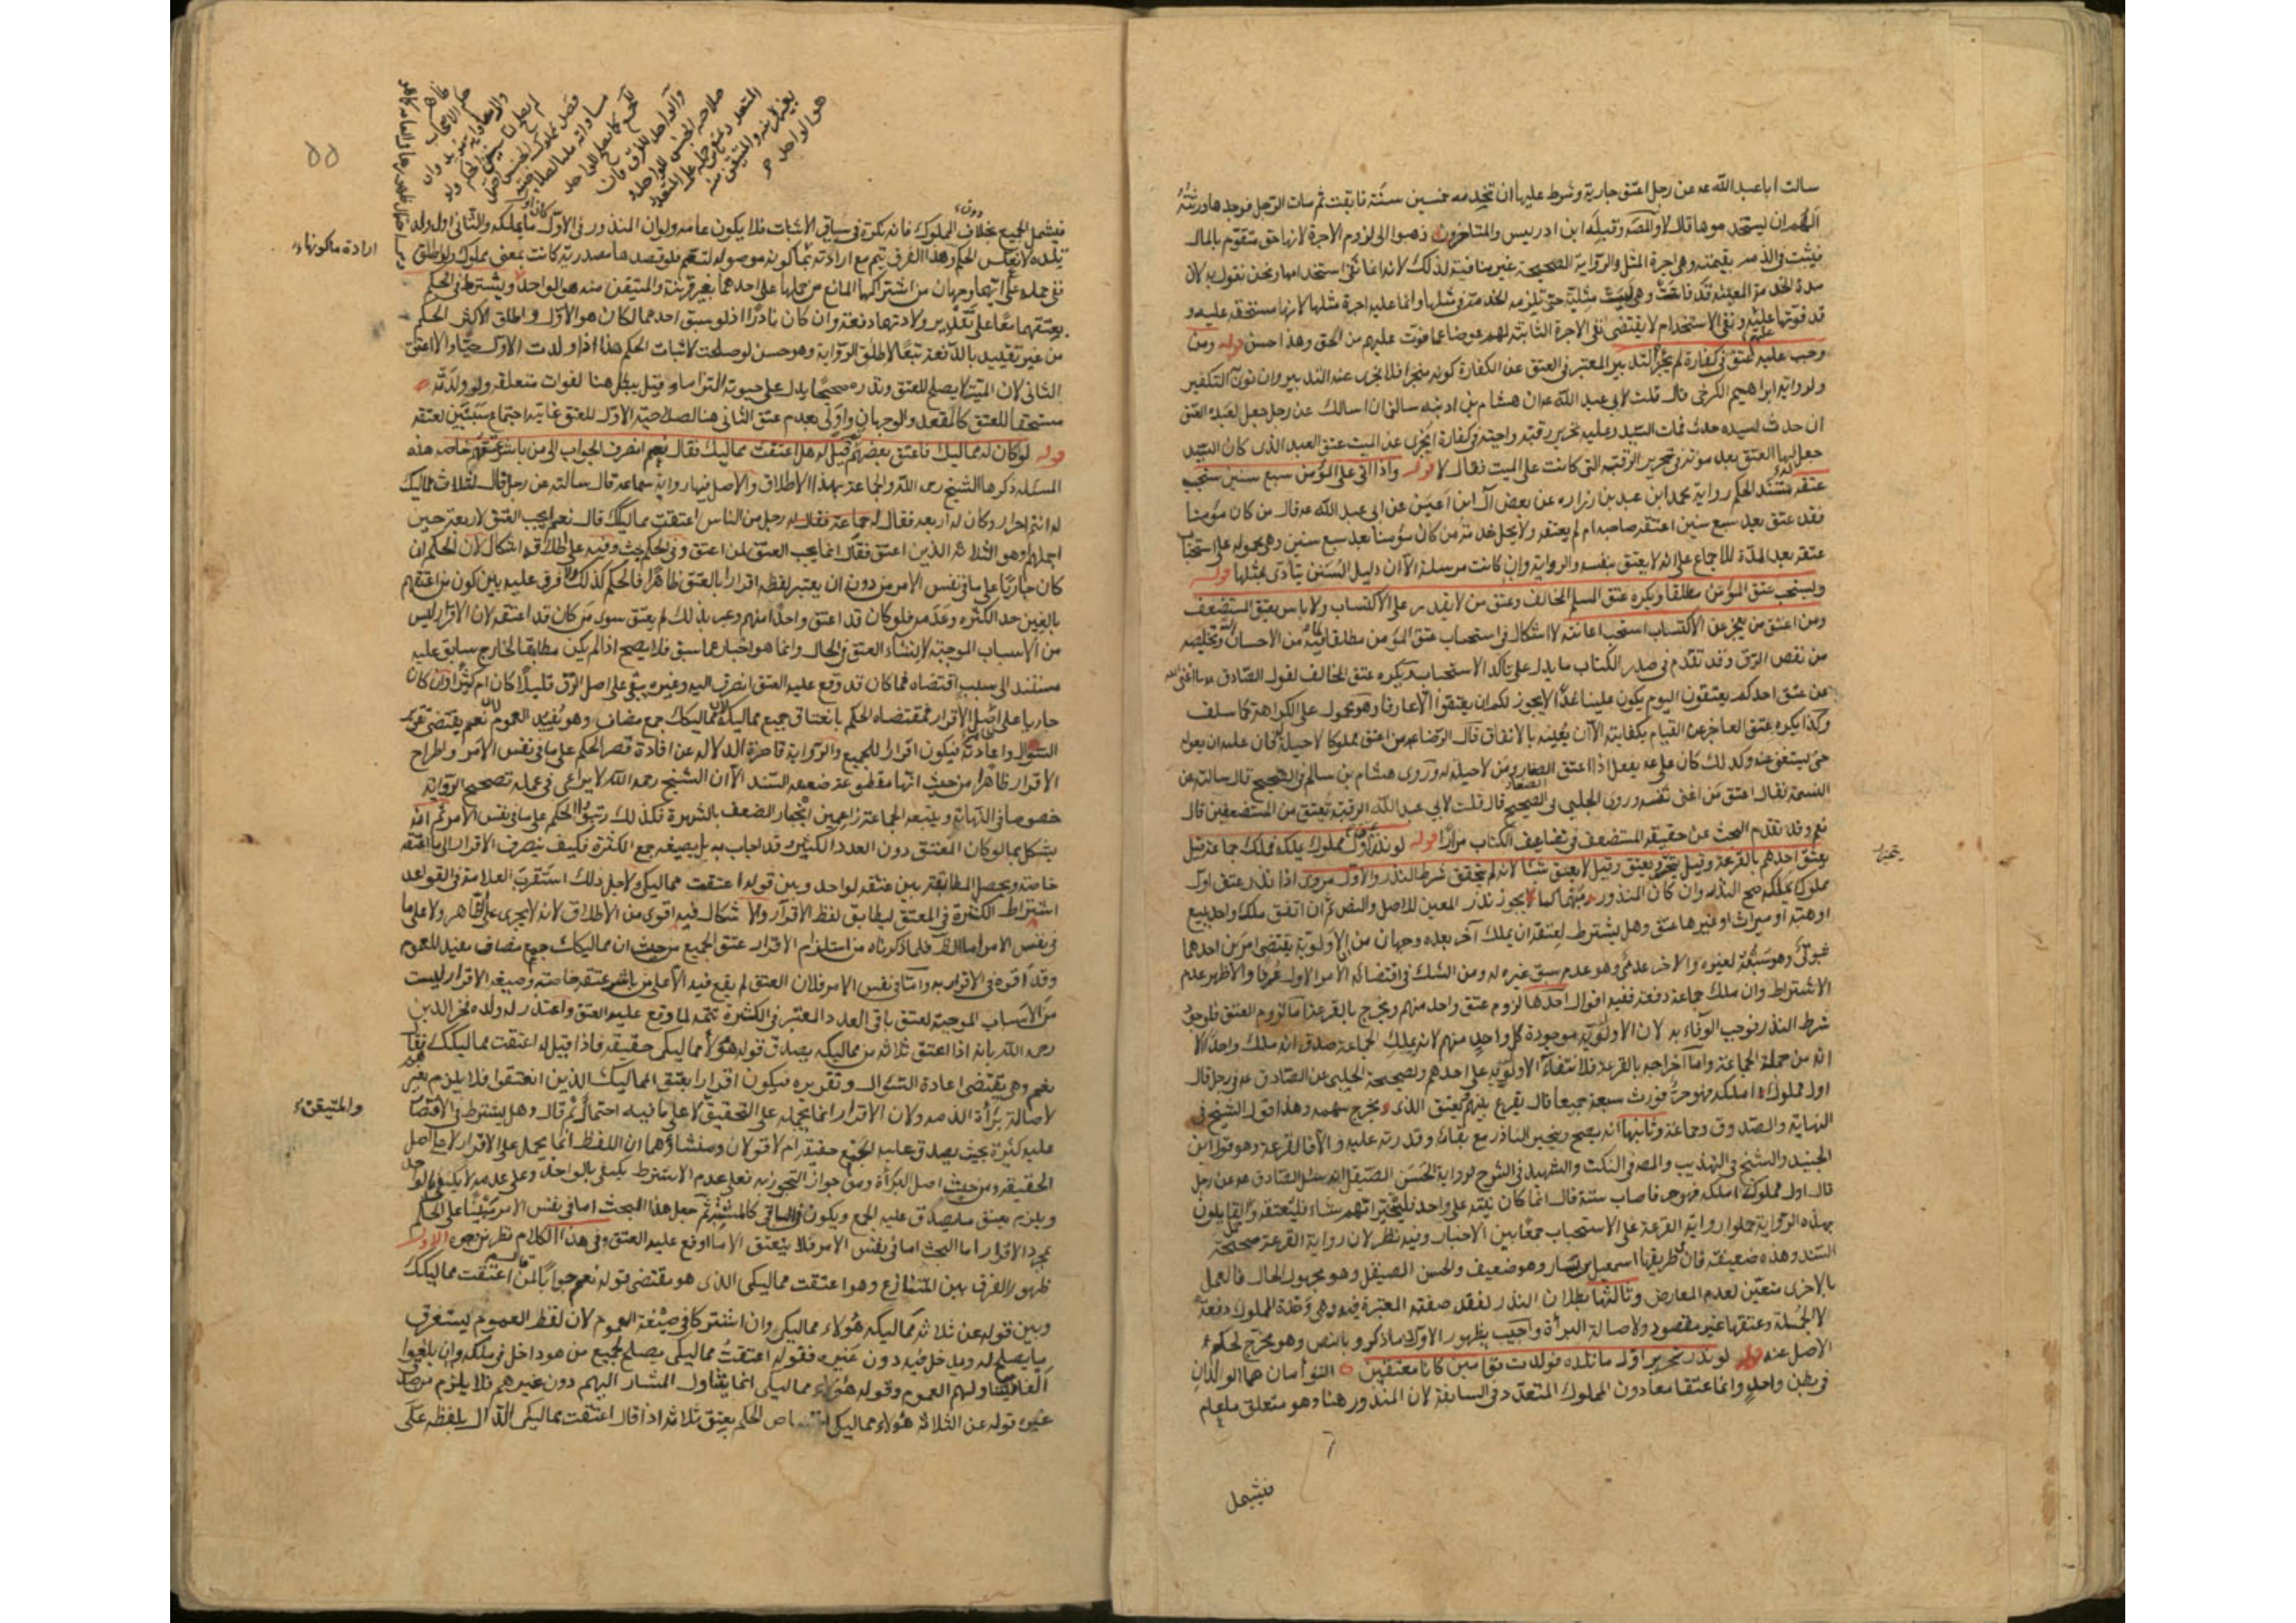 سالت ابا عبد الله عه عن رجل اعتق جارية وشرط عليها ان تخدمه خمسين سنة فابقت ثم مات الرجل فوجدها ورثته
الهم ان يستخدموها قال لا والمصه وقبله ابن ادريس والمتاخرون ذهبوا الى لزوم الاجرة لانها حق متقوم بالمال
فيثبت في الذمه بقيمته وهى اجرة المثل والرواية الصحيحة غير منافية لذلك لانه انما نفى استخدامها ونحن نقول به لان
مدة الخدمة المعينة قد فاتت وهى ليست مثلية حتى تلزمه الخدمة في مثلها وانما عليه اجرة مثلها لانها مستحقة عليه و
قد فوتها عليهم ونفى الاستخدام لا يقتضى نفى الاجرة الثابتة لهم عوضا عما فوت عليهم من الحق وهذا حسن قوله ومن
وجب عليه عتق في كفارة لم يجزه التدبير المعتبر في العتق عن الكفارة كونه منجزا فلا يجزى عنه التدبير وان نوى التكفير
ولرواية ابراهيم الكرخى قال قلت لابى عبد الله عه ان هشام بن اد سالنى ان اسالك عن رجل جعل لعبده العتق
ان حدث لسيده حدث فمات السيد وعليه تحرير رقبة واجبة في كفارة ايجزى عن الميت عتق العبد الذى كان السيد
جعل له العتق بعد موته في تحرير الرقبة التى كانت على الميت فقال لا قوله واذا اتى على المؤمن سبع سنين يستحب
عتقه مستند الحكم رواية محمد ابن عبد بن زراره عن بعض آل ابن اعين عن ابى عبد الله عه قال من كان مؤمنا
فقد عتق بعد سبع سنين اعتقه صاحبه ام لم يعتقه ولا يحل خدمة من كان مؤمنا بعد سبع سنين وهى محمولة على استحباب
عتقه بعد المدة للاجماع على انه لا يعتق بنفسه والرواية وان كانت مرسلة الا ان دليل السنن يتادى بمثلها قوله
ويستحب عتق المؤمن مطلقا ويكره عتق المسلم المخالف وعتق من لا يقدر على الاكتساب ولا باس بعتق المستضعف
ومن اعتق من يعجز عن الاكتساب استحب اعانته لا اشكال في استحباب عتق المؤمن مطلقا لما فيه من الاحسان وتخليصه
من نقص الرق وقد تقدم في صدر الكتاب ما يدل على تاكد الاستحباب ويكره عتق المخالف لقول الصادق عه ما اغنى الله
عن عتق احدكم يعتقون اليوم يكون علينا غدا لا يجوز لكم ان يعتقوا الا عارفا وهو محمول على الكراهة كما سلف
وكذا يكره عتق العاجز عن القيام بكفايته الا ان يعينه بالانفاق قال الرضا عه من اعتق مملوكا لا حيلة له فان عليه ان يعوله
حتى يستغنى عنه وكذلك كان على عه يفعل اذا اعتق الصغار ومن لا حيلة له وروى هشام بن سالم في الصحيح قال سالته عن
النسمة فقال اعتق من اغنى نفسه وروى الحلبى في الصحيح قال قلت لابى عبد الله الرقبة تعتق من المستضعفين قال
نعم وقد تقدم البحث عن حقيقة المستضعف في تضاعيف الكتاب مرارا قوله لو نذر عتق اول مملوك يملكه فملك جماعة قيل
يعتق احدهم بالقرعة وقيل يتخير ويعتق وقيل لا يعتق شيئا لانه لم يتحقق شرط النذر والاول مروى اذا نذر عتق اول
مملوك يملكه صح النذر وان كان المنذور مبهما كما يجوز نذر المعين للاصل والنص ثم ان اتفق ملك واحد ببيع
او هبة او ميراث او غيرها عتق وهل يشترط لعتقه ان يملك آخر بعده وجهان من ان الاولوية يقتضى امرين احدهما
ثبوتى وهو سبقه لغيره والاخر عدمى وهو عدم سبق غيره له ومن الشك في اقتضائه الامر الاول عرفا والاظهر عدم
الاشتراط وان ملك جماعة دفعة ففيه اقوال احدها لزوم عتق واحد منهم ويخرج بالقرعة اما لزوم العتق فلوجود
شرط النذر فوجب الوفاء به لان الاولوية موجودة كل واحد منهم لانه بملك الجماعة صدق انه ملك واحدا الا
انه من جملة الجماعة واما اخراجه بالقرعة فلانتفاء الاولوية على احدهم ولصحيحة الحلبى عن الصادق عه في رجل قال
اول مملوك املكه فهو حر فورث سبعة جميعا قال يقرع بينهم ويعتق الذى يخرج سهمه وهذا قول الشيخ في
النهاية والصدوق وجماعة وثانيها انه يصح ويتخير الناذر مع بقائه وقدرته عليه والا فالقرعة وهو قول ابن
الجنيد والشيخ في التهذيب والمصه في النكت والشهيد في الشرح لرواية الحسن الصيقل انه سئل الصادق عه عن رجل
قال اول مملوك املكه فهو حر فاصاب ستة قال انما كان نيته على واحد فليتخير ايهم شاء فليعتقه والقايلون
بهذه الرواية حملوا رواية القرعة على الاستحباب جمعا بين الاخبار وفيه نظر لان رواية القرعة صحيحة
السند وهذه ضعيفة فان طريقها اسمعيل بن يسار وهو ضعيف والحسن الصيقل وهو مجهول الحال فالعمل
بالاخرى متعين لعدم المعارض وثالثها بطلان النذر لفقد صفته المعتبرة فيه وهى وحدة المملوك دفعة
لا الجملة وعتقها غير مقصود ولاصالة البراة واجيب بظهور الاول ما ذكر وبالنص وهو مخرج لحكم
الاصل عنه قوله لو نذر تحرير اول ما تلده فولدت توامين كانا معتقين التوأمان هما الولدان
في بطن واحد وانما عتقا معا دون المملوك المتعدد في السابقة لان المنذور هنا وهو متعلق ما عام
فيشمل
٥٥
فيشمل الجميع بخلاف المملوك فانه نكرة في سياق الاثبات فلا يكون عاما ولو ان المنذور في الاول ما يملكه والثانى اول ولد
تلده لانعكس الحكم وهذا الفرق يتم مع ارادته بما كونه موصولة لتعم فلو قصدها مصدرية كانت بمعنى مملوك ولو اطلق
ففى حمله على ايهما وجهان من اشتراكها المانع من حملها على احدهما بغير قرينة والمتيقن منه هو الواحد ويشترط في الحكم
بعتقهما معا على تقدير ولادتهما دفعة وان كان نادرا اذ لو سبق احدهما لكان هو الاول واطلق الاكثر الحكم
من غير تقييد بالدفعة تبعا لاطلاق الرواية وهو حسن لو صلحت لاثبات الحكم هذا اذا ولدت الاول حيا والا عتق
الثانى لان الميت لا يصلح للعتق ونذره صحيحا يدل على حيوته التزاما وقيل يبطل هنا لفوات متعلقه ولو ولدته
مستحقا للعتق كالمقعد والوجهان واولى بعدم عتق الثانى هنا لصلاحية الاول للعتق غايته اجتماع سببين لعتقه
قوله لو كان له مماليك فاعتق بعضهم قيل له هل اعتقت مماليك فقال نعم انصرف الجواب الى من باشر عتقهم خاصة هذه
المسئلة ذكرها الشيخ رحمه الله والجماعة بهذا الاطلاق والاصل فيها رواية سماعة قال سالته عن رجل قال لثلاث مماليك
له انتم احرار وكان له اربعة فقال له جماعة فقال له رجل من الناس اعتقت مماليكك قال نعم ايجب العتق لاربعة حين
اجملهم او هو الثلاثة الذين اعتق فقال انما يجب العتق لمن اعتق وفى الحكم بحث وفيه على اطلاقه اشكال لان الحكم ان
كان جاريا على ما في نفس الامر من دون ان يعتبر لفظه اقرارا بالعتق ظاهرا فالحكم كذلك ولا فرق عليه بين كون من اعتقهم
بالغين حد الكثرة وعدمه فلو كان قد اعتق واحدا منهم وعبر بذلك لم يعتق سوى من كان قد اعتقه لان الاقرار ليس
من الاسباب الموجبة لانشاء العتق في الحال وانما هو اخبار عما سبق فلا يصح اذا لم يكن مطابقا لخارج سابق عليه
مستند الى سبب اقتضاه فما كان قد وقع عليه العتق انصرف اليه وغيره يبقى على اصل الرق قليلا كان ام كثيرا وان كان
جاريا على اصل الاقرار فمقتضاه الحكم بانعتاق جميع مماليكه لان مماليكك جمع مضاف وهو يفيد العموم لان نعم يقتضى تقرير
السؤال واعادته فيكون اقرارا للجميع والرواية قاصرة الدلالة عن افادة قصر الحكم على ما في نفس الامر واطراح
الاقرار ظاهرا من حيث انها مقطوعة ضعيفة السند الا ان الشيخ رحمه الله لا يراعى في عمله تصحيح الرواية
خصوصا في النهاية ويتبعه الجماعة زاعمين انجبار الضعف بالشهرة فكذلك رتبوا الحكم على ما في نفس الامر ثم انه
يشكل بما لو كان المعتق دون العدد الكثير وقد اجاب به بل بصيغة جمع الكثرة فكيف ينصرف الاقرار الى ما اعتقه
خاصة ويحصل المطابقة بين عتقه لواحد وبين قوله اعتقت مماليكى ولاجل ذلك استقرب العلامة في القواعد
اشتراط الكثرة في المعتق ليطابق لفظ الاقرار والاشكال فيه اقوى من الاطلاق لانه لا يجرى على الظاهر ولا على ما
في نفس الامر اما الظ فلما ذكرناه من استلزام الاقرار عتق الجميع من حيث ان مماليكك جمع مضاف يفيد للعموم
وقد اقره في الاقرار به واما في نفس الامر فلان العتق لم يقع فيه الا على من باشر عتقه خاصة وصيغة الاقرار ليست
من الاسباب الموجبة لعتق باقى العدد المعتبر في الكثرة تتمة لما وقع عليه العتق واعتذر له ولده فخر الدين
رحمه الله بانه اذا اعتق ثلاثة من مماليكه يصدق قوله هؤلاء مماليكى حقيقة فاذا قيل له اعتقت مماليكك فقال
نعم وهى يقتضى اعادة السؤال وتقريره فيكون اقرارا بعتق المماليك الذين اعتقوا فلا يلزم غير
لاصالة براءة الذمة ولان الاقرار انما يحمل على التحقيق لا على ما فيه احتمال ثم قال وهل يشترط في الاقتصار
عليه كثيرة بحيث يصدق عليه الجمع حقيقة ام لا قولان ومنشاؤهما ان اللفظ انما يحمل على الاقرار لا حاصل
الحقيقة ومن حيث اصل البراءة ومن جواز التجوز به فعلى عدم الاشتراط يكتفى بالواحد وعلى عدمه لا يكتفى بالواحد
ويلزم بعتق ما يصدق عليه الجمع ويكون في الباقى كالمشتبه ثم جعل هذا البحث اما في نفس الامر مبنيا على الحكم
بمجرد الاقرار اما البحث اما في نفس الامر فلا ينعتق الا ما اوقع عليه العتق وفى هذا الكلام نظر من وجوه الاول
ظهور الفرق بين المتنازع وهو اعتقت مماليكى الذى هو مقتضى قوله نعم جوابا لمن قال له اعتقت مماليكك
وبين قوله عن ثلاثة مماليكه هؤلاء مماليكى وان اشتركا في صيغة العموم لان لفظ العموم يستغرق
ما يصلح له ويدخل فيه دون غيره فقوله اعتقت مماليكى يصلح لجميع من هو داخل في ملكه وان بلغوا
الفا فيتناولهم العموم وقوله هؤلاء مماليكى انما يتناول المشار اليهم دون غيرهم فلا يلزم من صدق
غيره قوله عن الثلاثة هؤلاء مماليكى اختصاص الحكم بعتق ثلاثة اذا قال اعتقت مماليكى الدال بلفظه على
ارادة ما كونها
والمتيقن